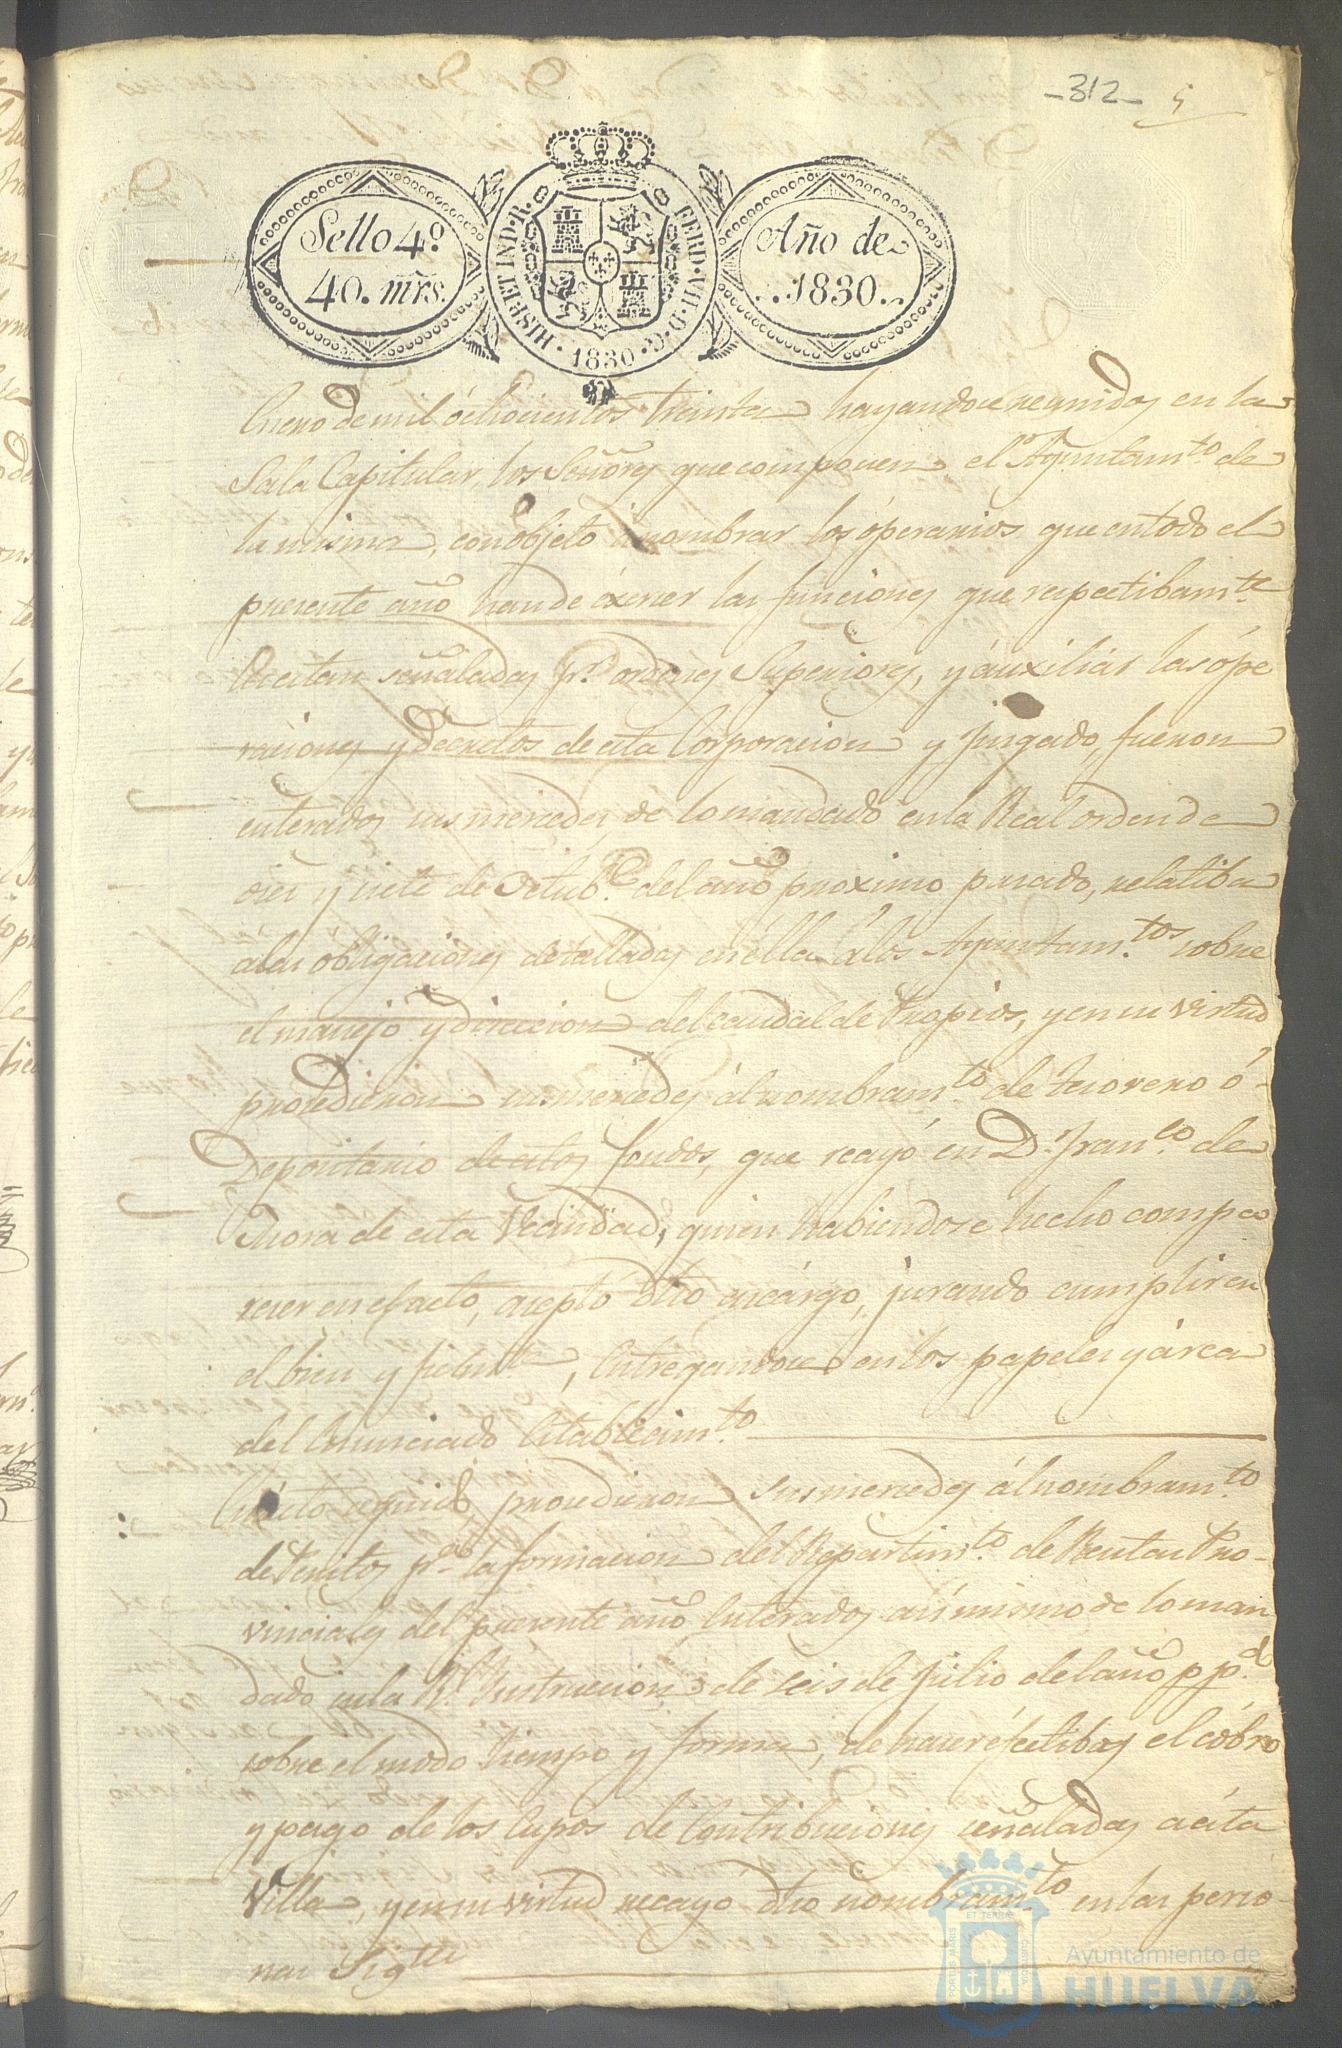 -312- 5
Sello 4º
40. mrs.
HISP. ET IND. R. FERD. VII. D. G. 1830
Año de
1830.
Enero de mil ochocientos treinta hayandose reunidos en la
Sala Capitular, los Señores que componen el Ayuntam.to de
la misma, con objeto a nombrar los óperarios que en todo el
presente año han de éxercer las funciones que respectibam.te
le estan señaladas pr. ordenes Superiores, y áuxiliar las ópe
raciones y decretos de esta Corporacion y Juzgado, fueron
enterados sus mercedes, de lo mandado en la Real orden de
diez y siete de Octub.e del año proximo pasado, relatiba
a las obligaciones detalladas en ella a los Ayuntam.tos sobre
el manejo y direccion del caudal de Propios, y en su virtud
procedieron sus mercedes al nombram.to de tesorero ó-
Depositario de estos fondos, que recayó en D. Fran.co de
Mora de esta Vecindad, quien habiendose hecho compa
recer en el acto, aceptó dho encárgo, jurando cumplir en
el bien y fielm.te, entregandose en los papeles y árca
del enunciado Establecim.to
En éste seguido, procedieron sus mercedes ál nombram.to
de Peritos p.a la formacion del Repartim.to de Rentas Pro-
vinciales del presente año Enterados asi mismo de lo man
dado en la R.l Instruccion de seis de Julio del año p.p.do
sobre el modo tiempo y forma, de hacer éfectibas el cóbro
y pago de los Cupos de Contribuciónes señaladas a ésta
Villa, y en su virtud recayo dho nombram.to en las perso-
nas Sig.tes
PORTUS MARIS ET TERRAE CUSTODIA
Ayuntamiento de
HUELVA